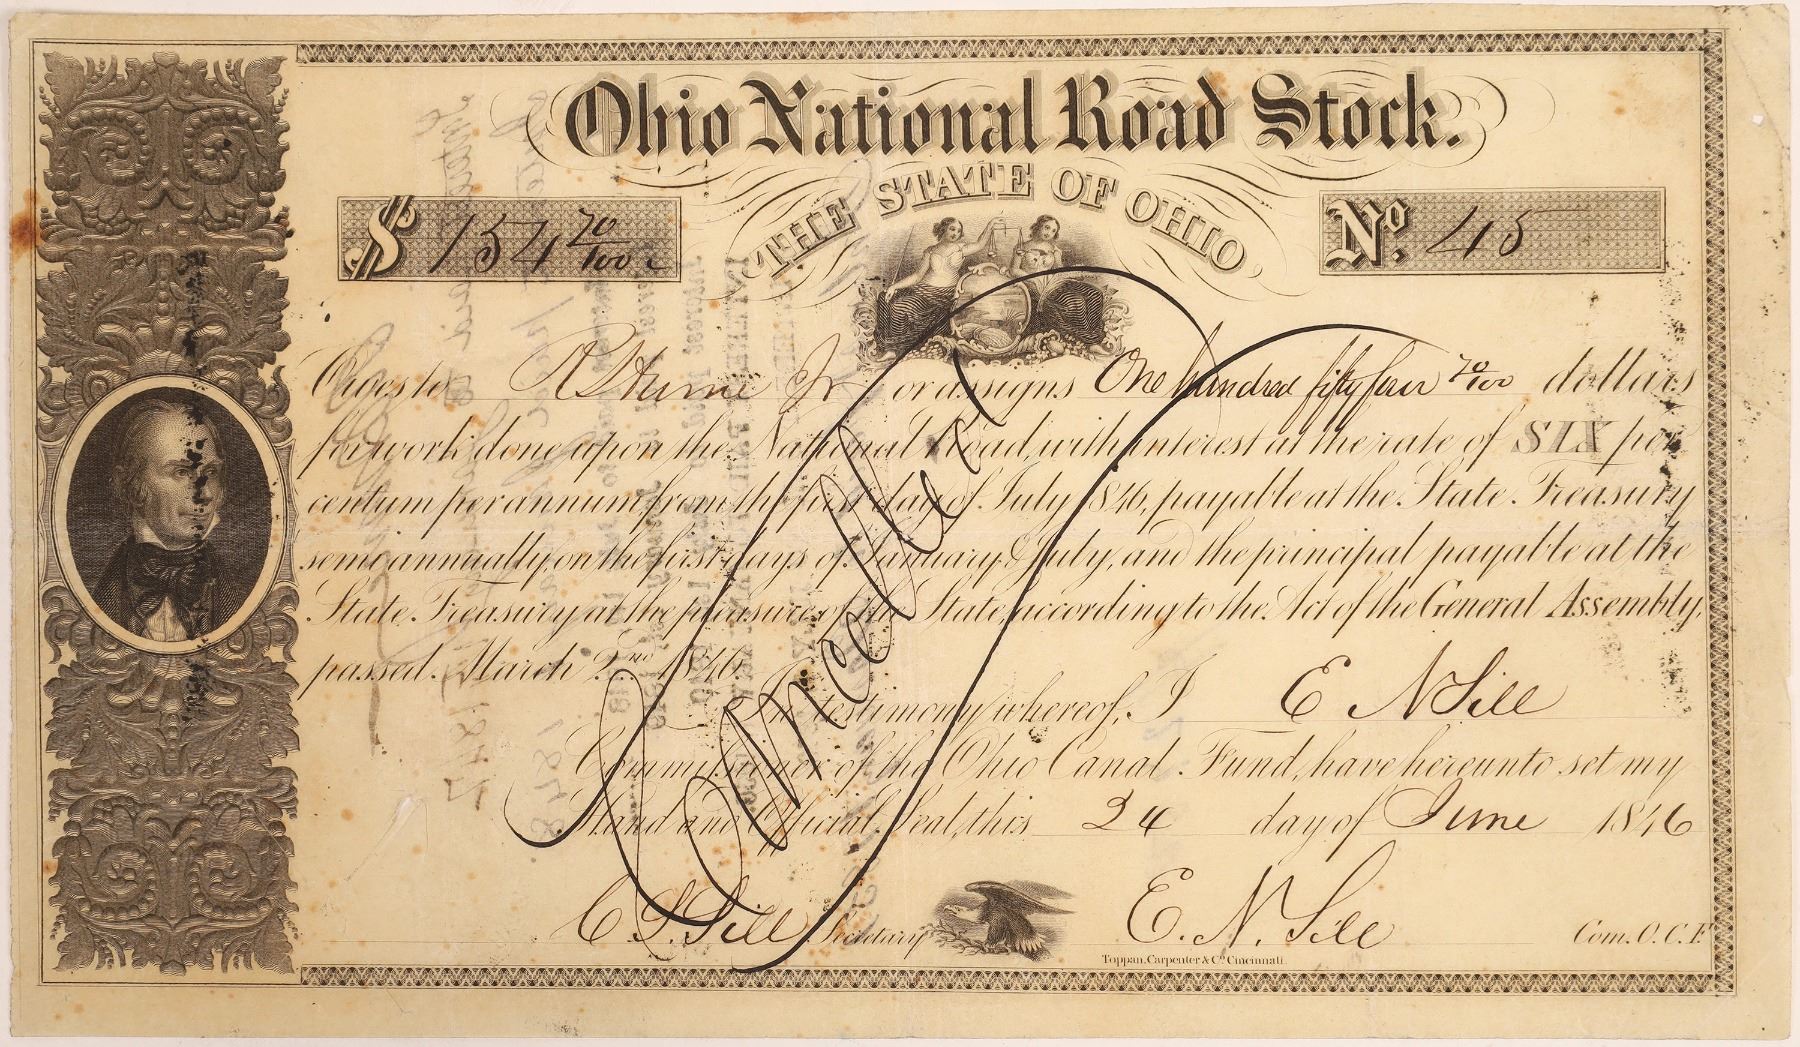 Ohio National Road Stock.
THE STATE OF OHIO
$ 154 70/100
No. 45
Owes to R S Hume Jr or assigns One hundred fifty four 70/100 dollars
for work done upon the National Road, with interest at the rate of SIX per
centum per annum from the first day of July 1846, payable at the State Treasury
semi annually, on the first days of January & July, and the principal payable at the
State Treasury at the pleasure of the State, according to the Act of the General Assembly,
passed March 2nd 1846.
In testimony whereof, I E N Sill
Commissioner of the Ohio Canal Fund, have hereunto set my
Hand and Official Seal, this 24 day of June 1846
Cancelled
C S Sill Secretary
E. N. Sill Com. O. C. F.
Toppan, Carpenter & Co. Cincinnati.